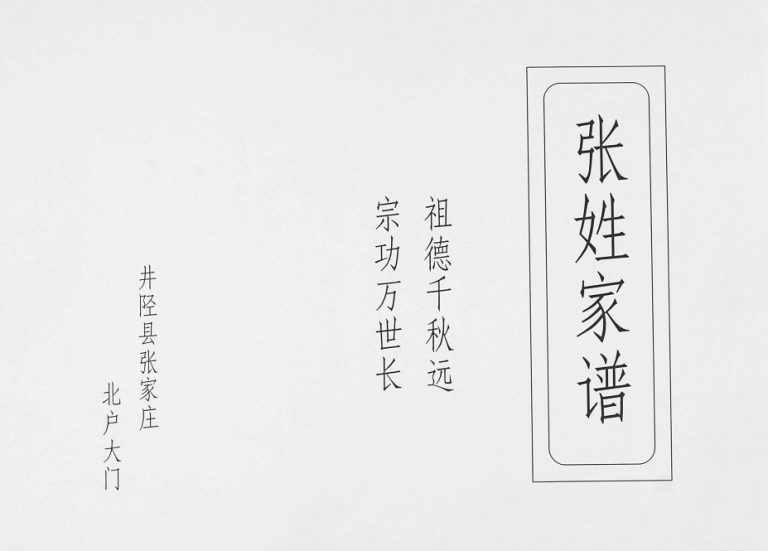 张姓家谱
祖德千秋远
宗功万世长
井陉县张家庄
北户大门